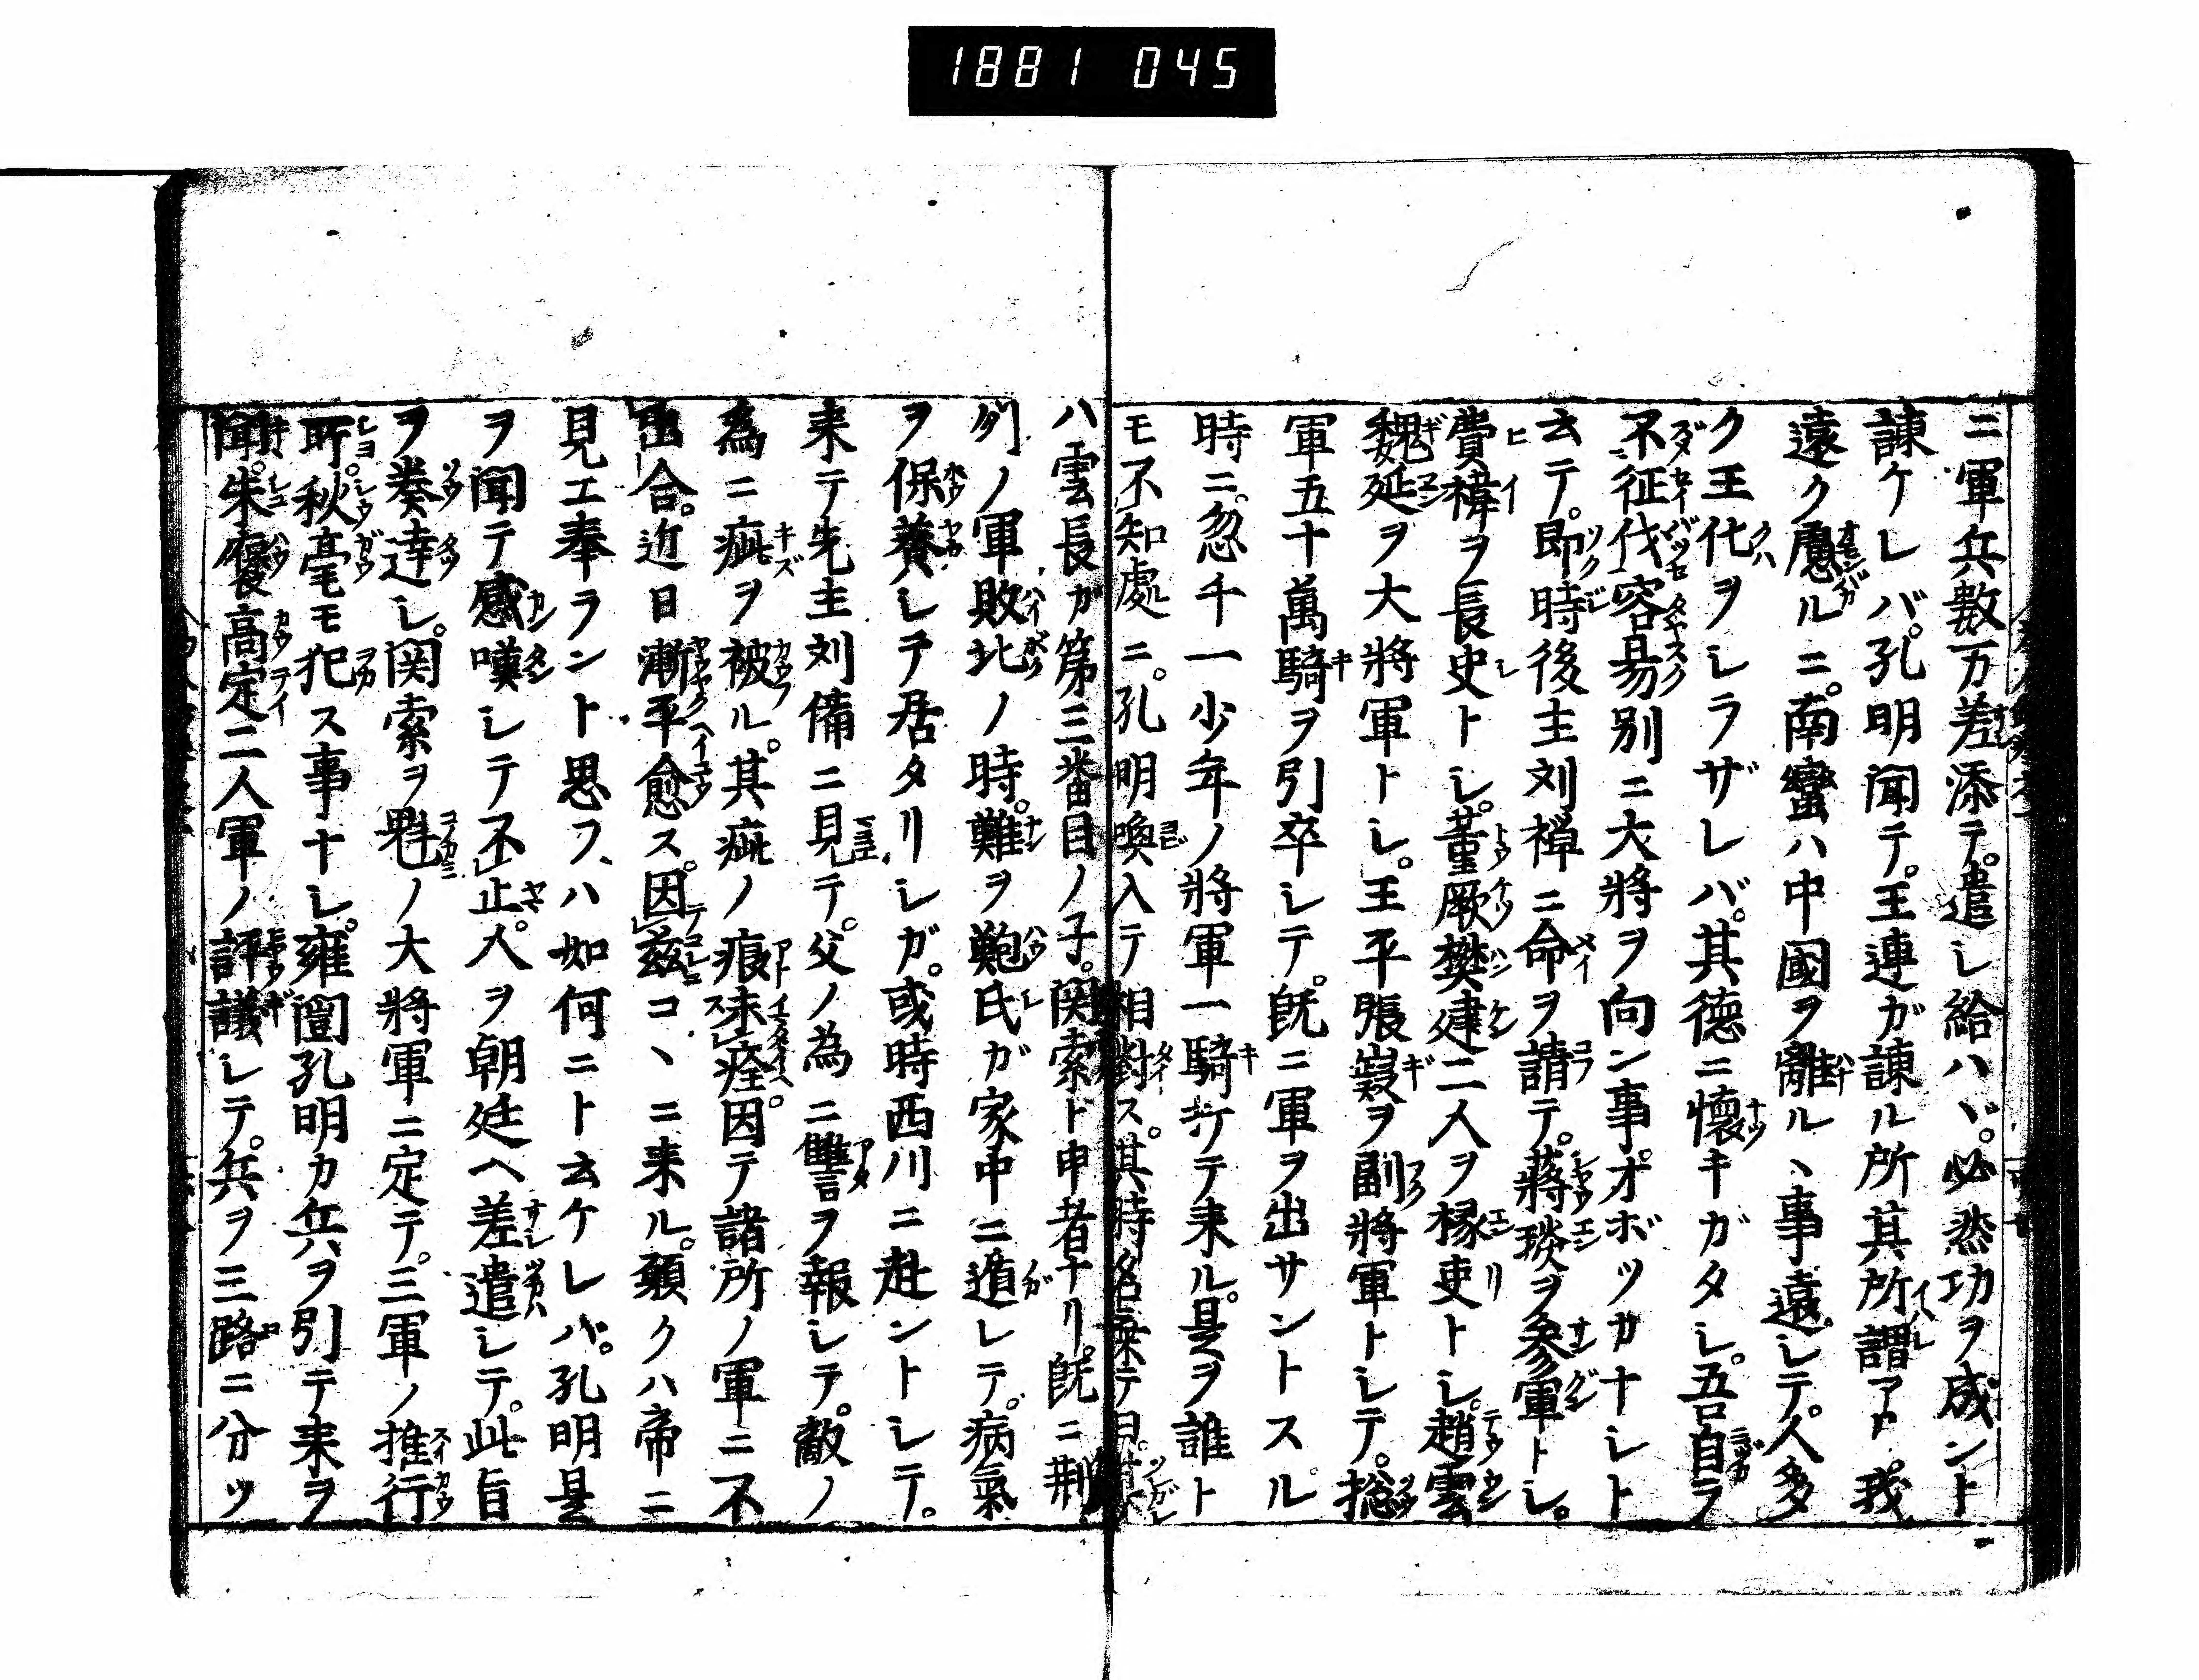 1881 045
ニ軍兵數万差添テ。遣シ給ハヾ。必然功ヲ成ント
諌ケレバ。孔明聞テ。王連ガ諌ル所其所謂アト。我
遠ク慮ルニ。南蠻ハ中國ヲ離ルヽ事遠シテ。人多
ク王化ヲシラザレバ。其徳ニ懐キガタシ。吾自ラ
不征伐容易別ニ大將ヲ向ン事オボツカナシト
云テ。即時後主刘禅ニ命ヲ請テ。蒋琰ヲ參軍トシ。
費禕ヲ長史トシ。董厥樊建二人ヲ掾吏トシ。趙雲
魏延ヲ大將軍トシ。王平張嶷ヲ副將軍トシテ。総
軍五十萬騎ヲ引卒シテ。既ニ軍ヲ出サントスル
時ニ。忽チ一少年ノ將軍一騎打テ来ル。是ヲ誰ト
モ不知處ニ。孔明喚入テ相對ス。其時名乗テ曰。
ハ雲長ガ第三番目ノ子。関索ト申者ナリ。既ニ荆
刕ノ軍敗北ノ時。難ヲ鮑氏ガ家中ニ遁レテ。病氣
ヲ保養シテ居タリシガ。或時西川ニ赴ントシテ。
来テ先主刘備ニ見テ。父ノ為ニ讐ヲ報シテ。敵ノ
為ニ疵ヲ被ル。其疵ノ痕未痊。因テ諸所ノ軍ニ不
出合。近日漸平愈ス。因茲コヽニ来ル。願クハ帝ニ
見エ奉ラント思フ、ハ如何ニト云ケレバ。孔明是
ヲ聞テ感嘆シテ不止。人ヲ朝廷ヘ差遣シテ。此旨
ヲ奏達シ。関索ヲ魁ノ大將軍ニ定テ。三軍ノ推行
所。秋毫モ犯ス事ナシ。雍闓孔明カ兵ヲ引テ来ヲ
聞。朱褒高定二人軍ノ評議シテ。兵ヲ三路ニ分ツ